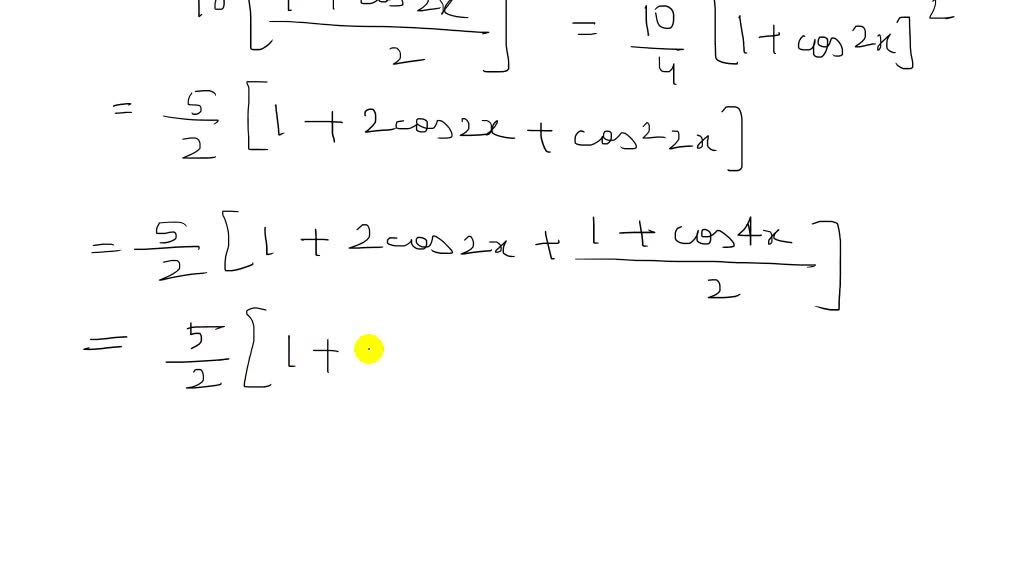 10 [1 + cos 2x / 2] = 10/4 [1 + cos 2x]^2
= 5/2 [1 + 2cos2x + cos^2 2x]
= 5/2 [1 + 2cos2x + 1 + cos4x / 2]
= 5/2 [1 +